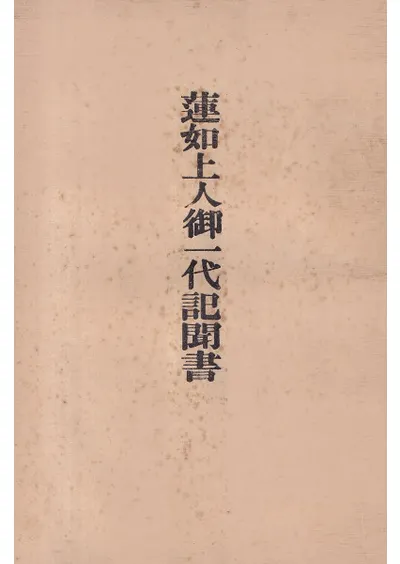 蓮如上人御一代記聞書